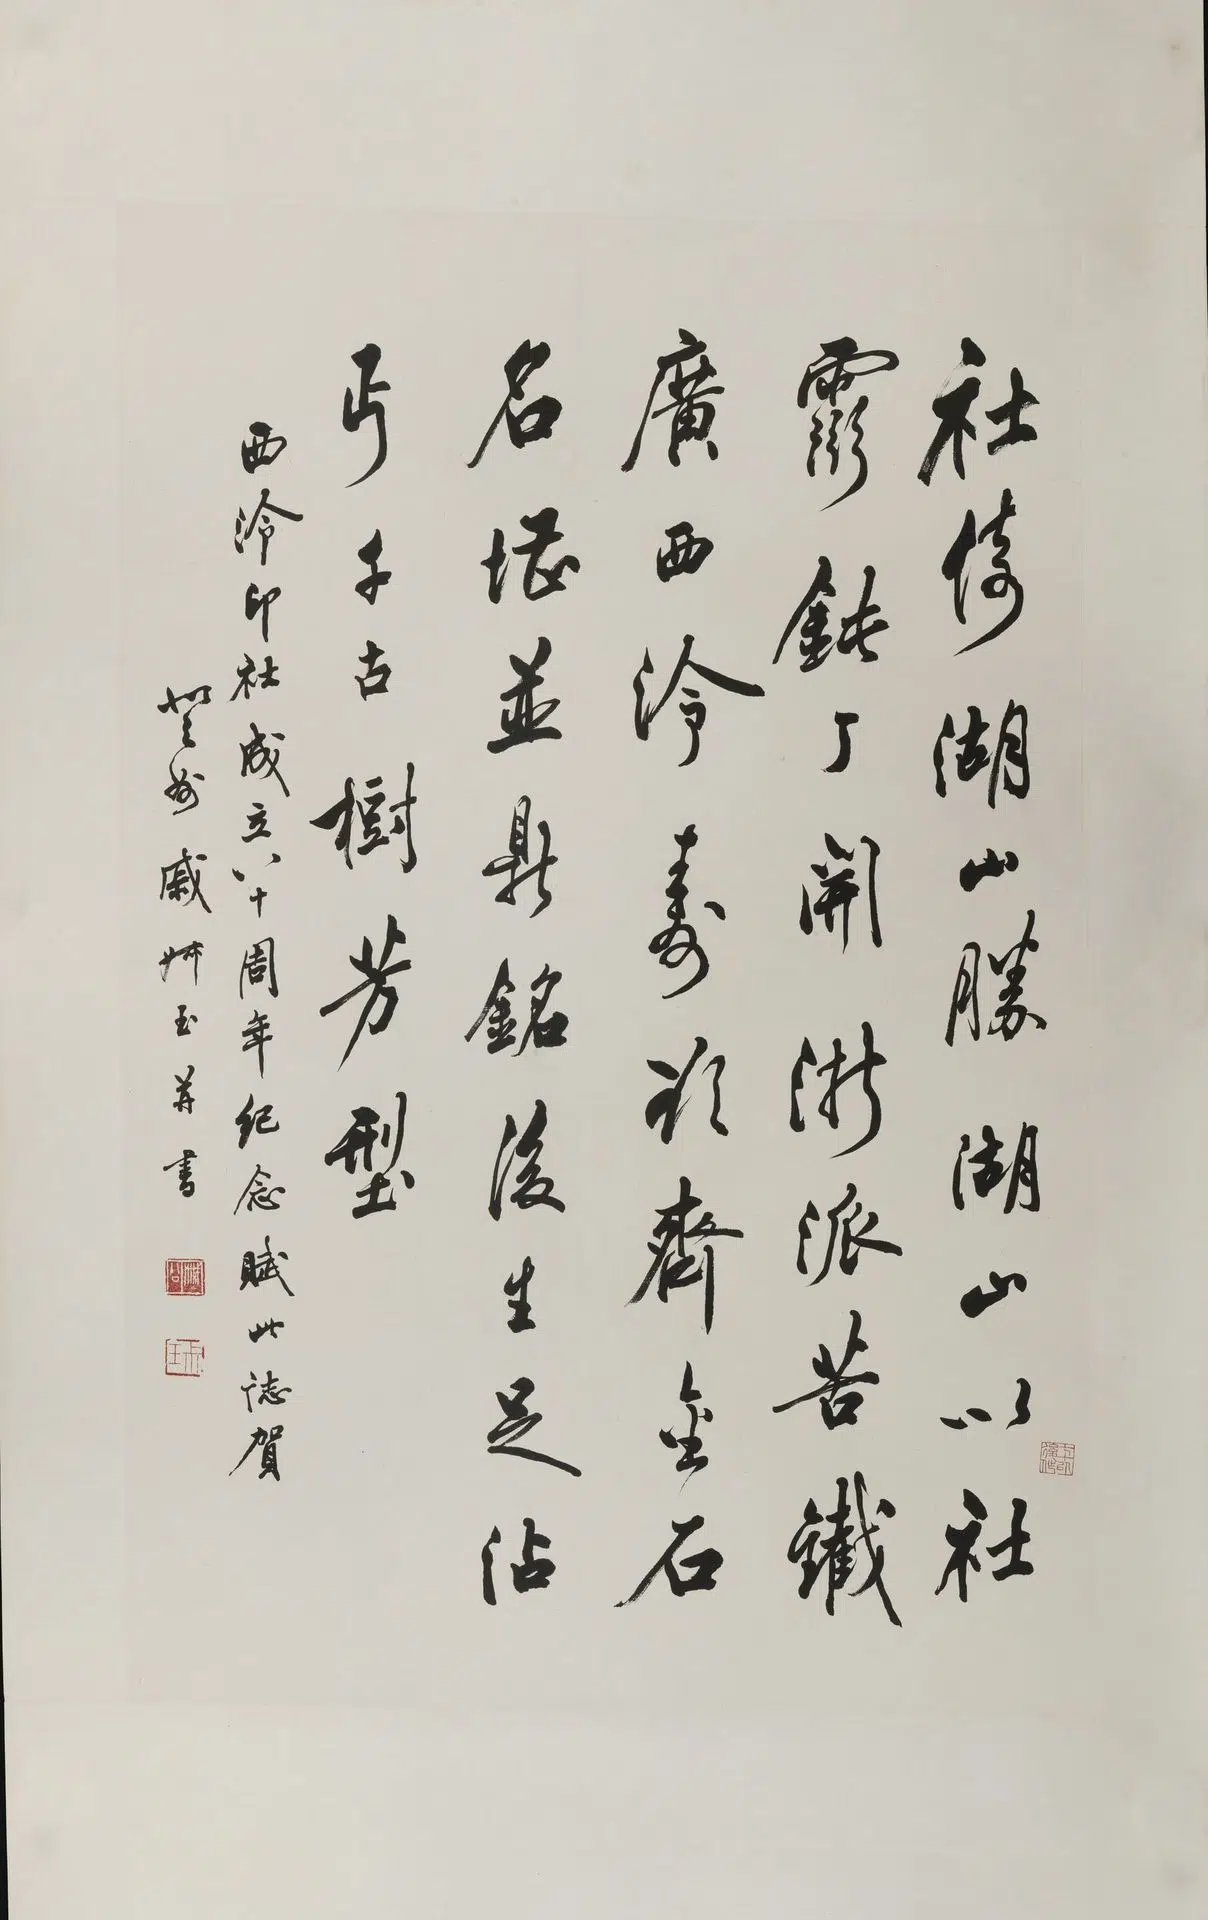 社倚湖山勝湖山以社
靈鈍丁開浙派苦鐵
廣西泠壽欲齊金石
名堪並鼎銘後生足沾
丐千古樹芳型
西泠印社成立八十周年紀念賦此誌賀
登州戚叔玉并書